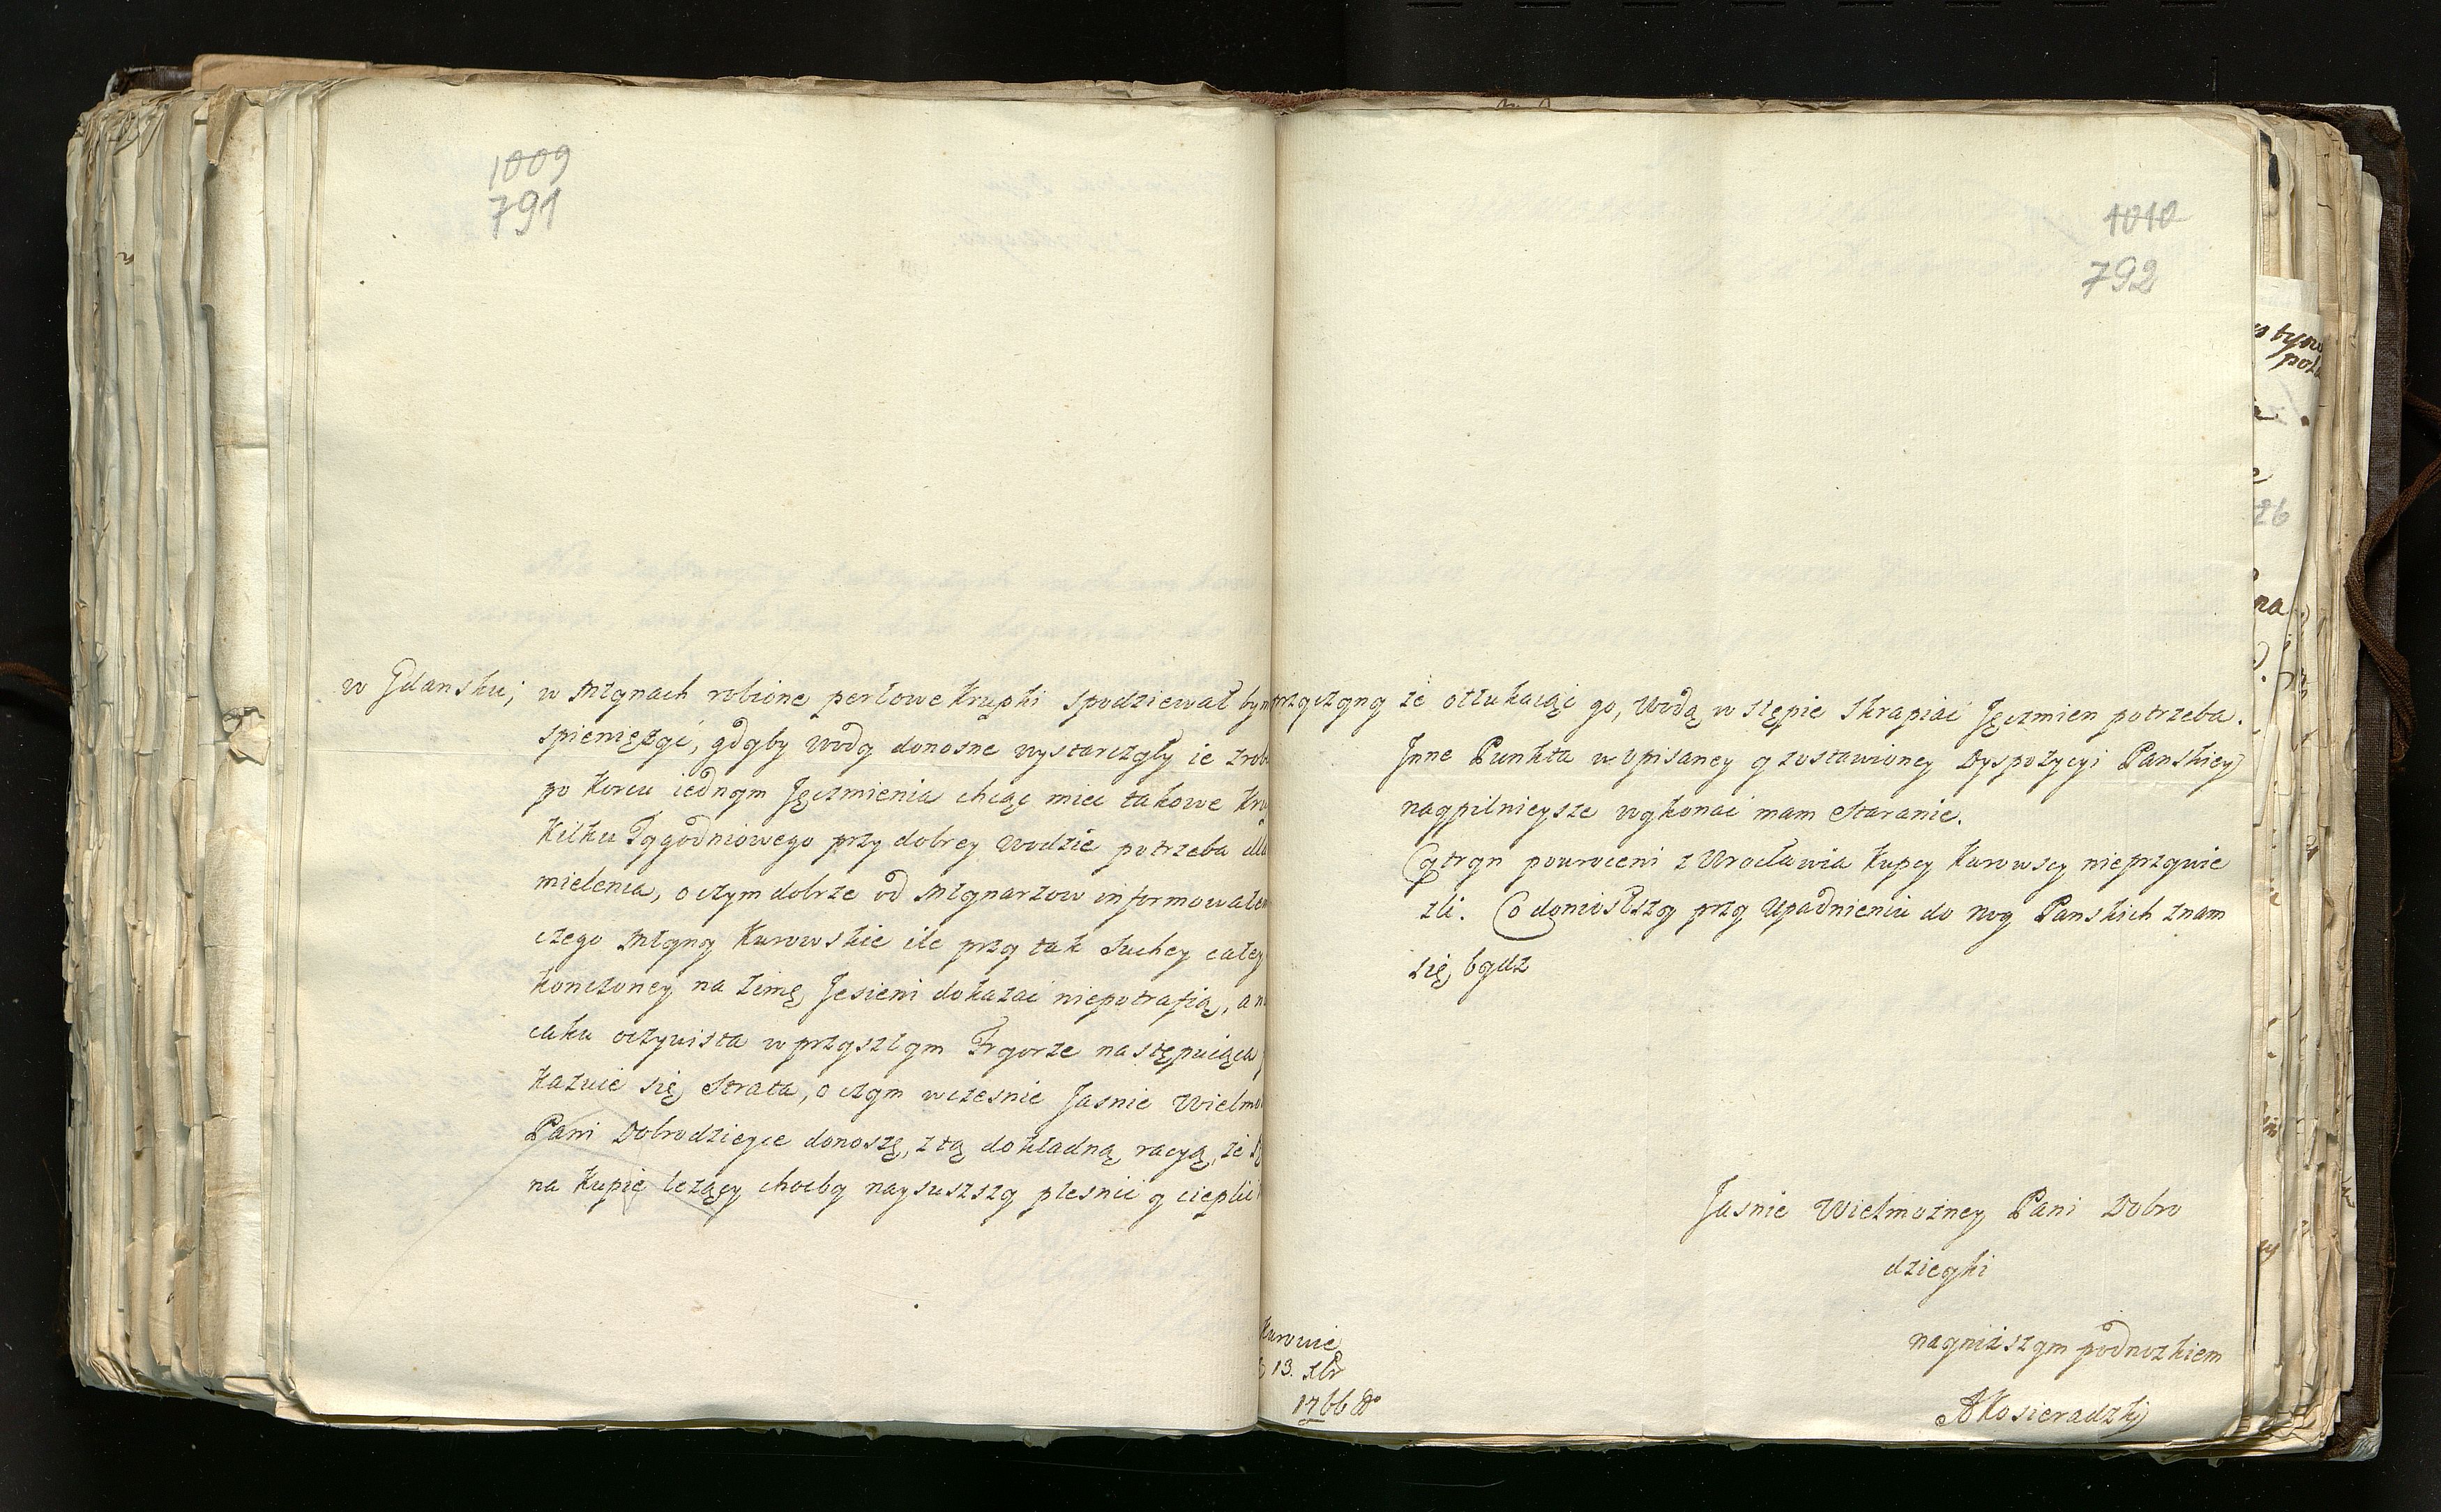 1009
791
w Gdansku; w Młynach robione perłowe Krupki spodziewał bym
spieniężyć, gdyby wody donosne wystarczyły ie zrob
po Korcu iednym Jęczmienia chcąc miec takowe Kru
Kilku Tygodniowego przy dobrey wodzie potrzeba dla
mielenia, o czym dobrze od Młynarzow informowałem
czego Młyny Kurowskie ile przy tak Suchey całey
Konczoney na zimę Jesieni dokazać niepotrafią, a n
caku oczywista w przyszłym Frygorze następuiąca
kazuie się Strata, o czym wczesnie Jasnie Wielmo
Pani Dobrodzieyce donoszę, z tą dokładną racyą, że
na Kupie leżący choćby naysuszszy plesnie y cieplie
1010
792
przyczyny że ottukaiąc go, Wodą w stępie Skrapiać Jęczmien potrzeba.
Jnne Punkta w opisaney y zostawioney Dyspozycyi Panskiey
naypilnieysze wykonać mam Staranie.
Cytryn powroceni z Wrocławia Kupcy Kurowscy nieprzywie
zli. Co doniosłszy przy Upadnieniu do nog Panskich znam
się bydz
Jasnie Wielmożney Pani Dobro
dzieyki
nayniższym podnożkiem
AKosieradzki
Kurowie
13. Xbr
1766 Ao
26
na